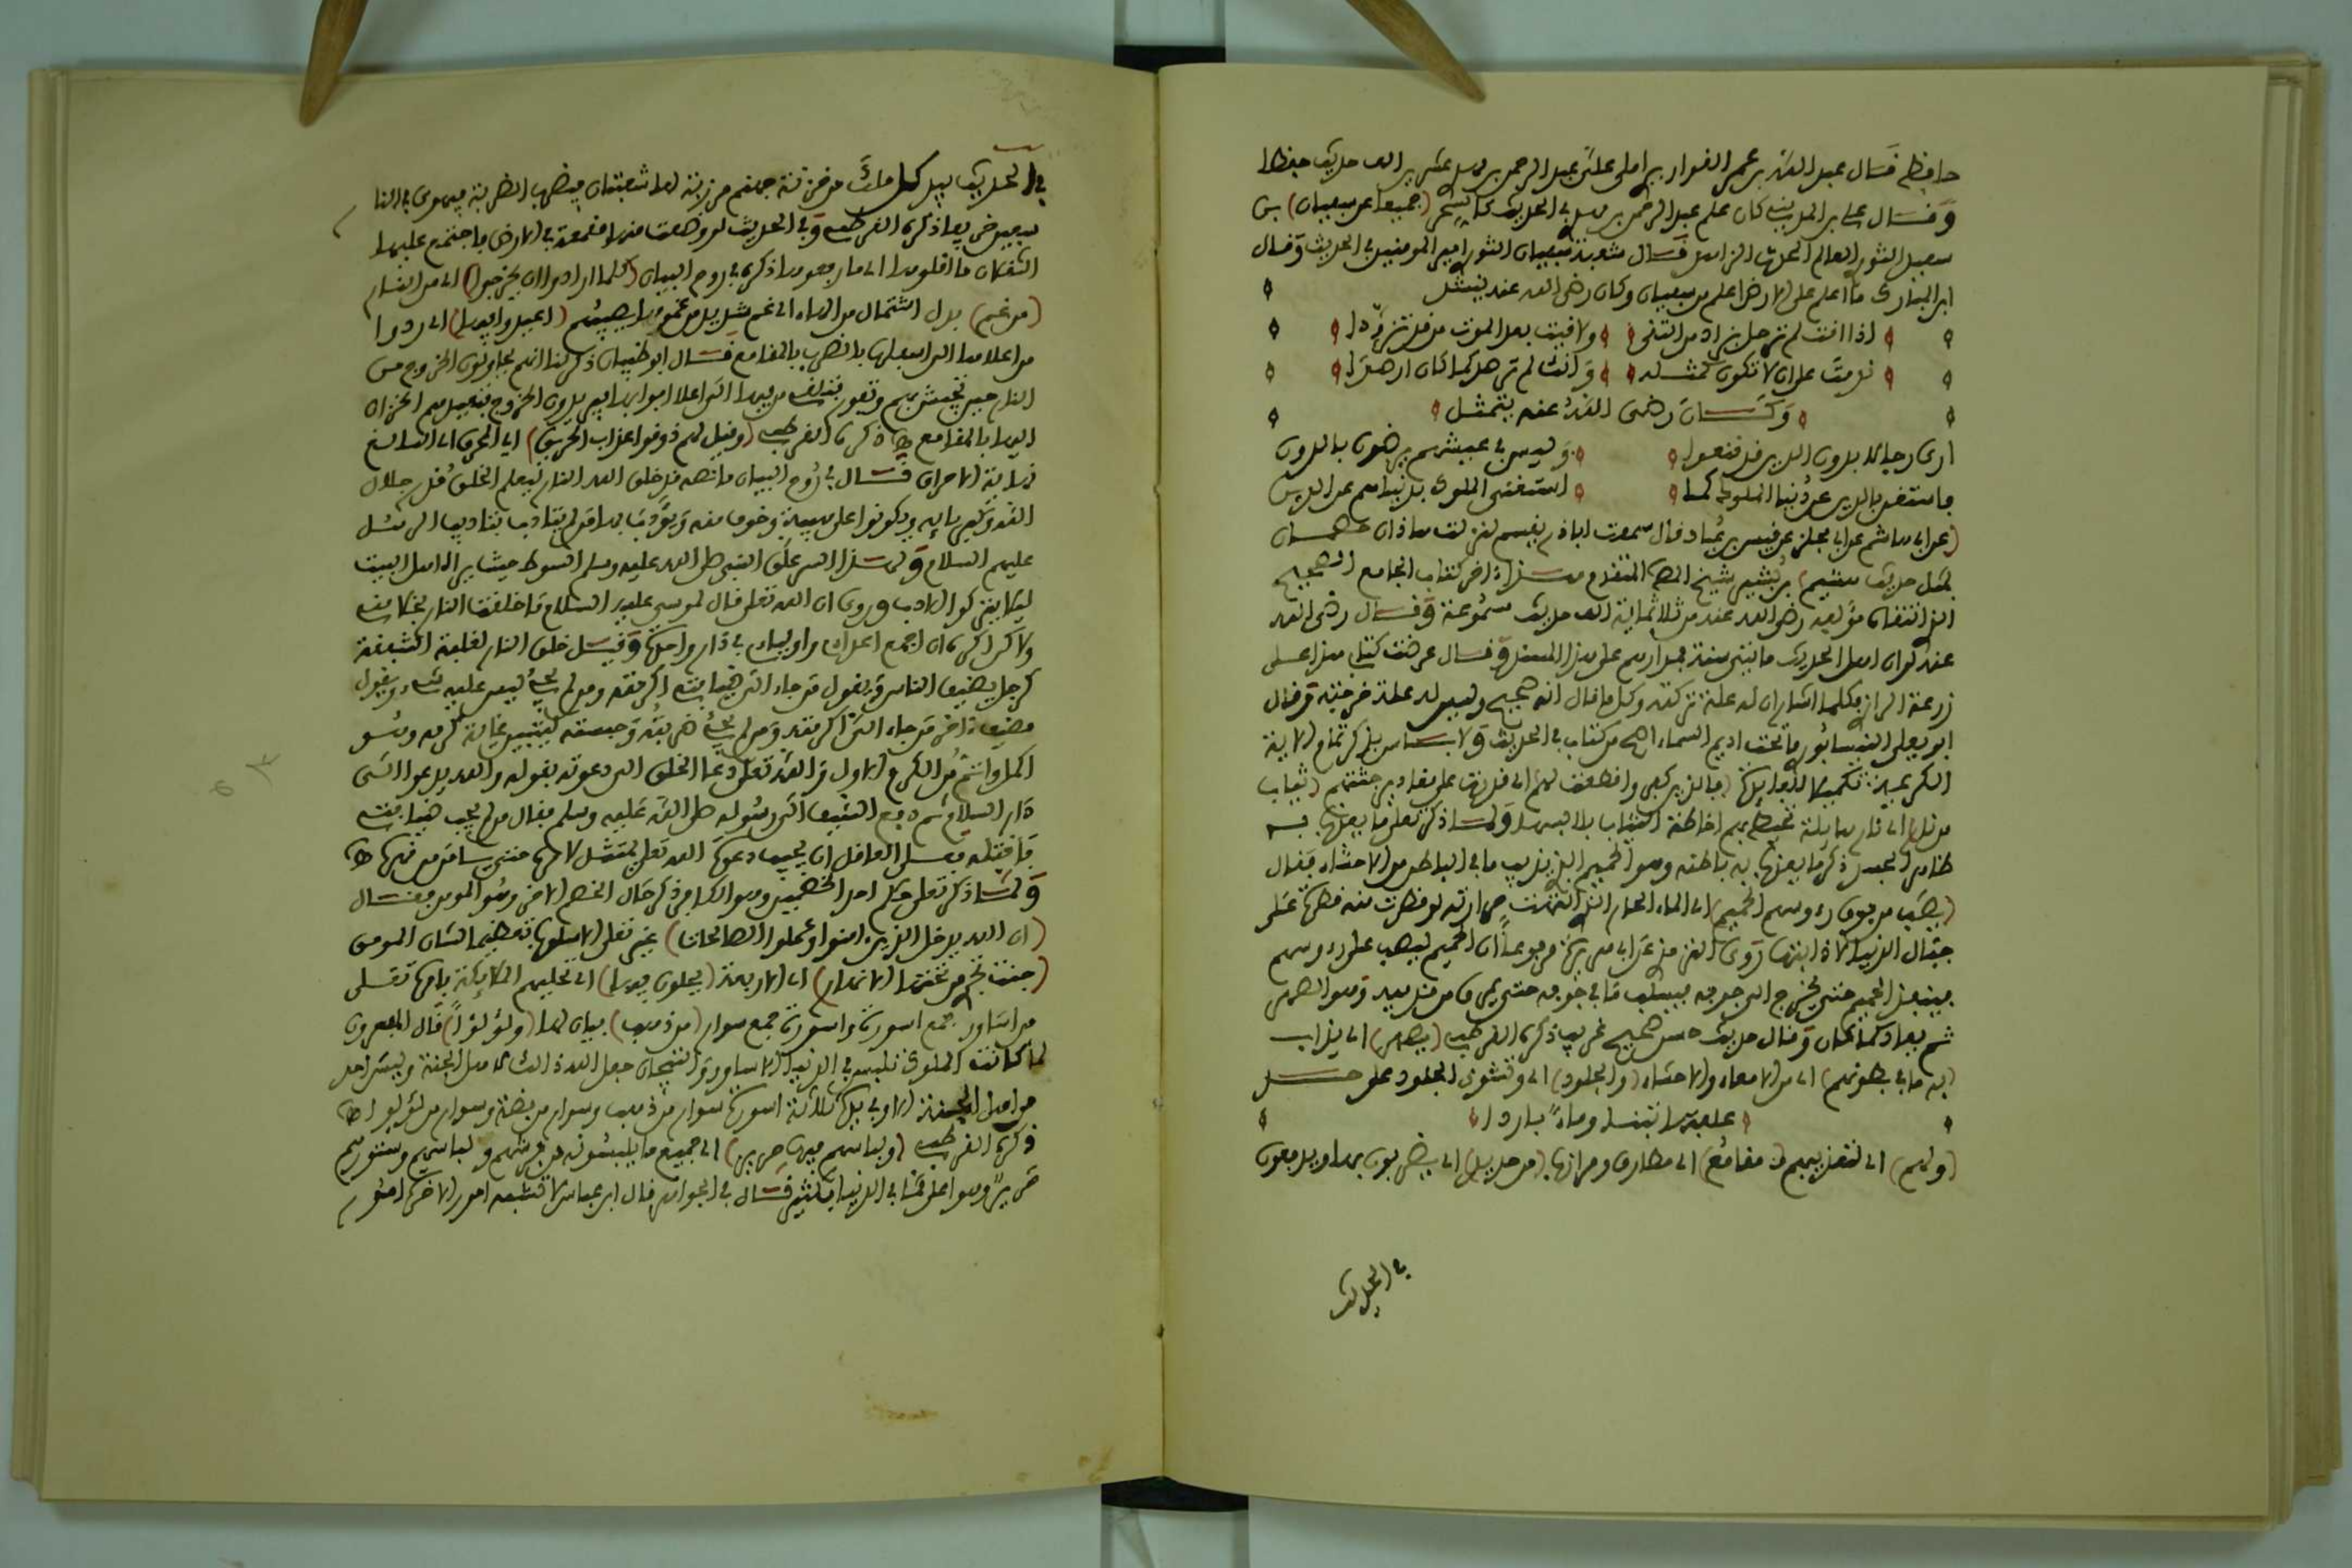 حافظ قال عبد الله بن عمر القواريري املى علي عبد الرحمن بن مهدي عشرين الف حديث حفظا
وقال علي بن المديني كان علم عبد الرحمن بن مهدي في الحديث كالسحر (جميعا عن سفيان) بن
سعيد الثوري العالم الزاهد قال شعبة سفيان الثوري امير المومنين في الحديث وقال
ابن المبارك ما اعلم على الارض اعلم من سفيان وكان رضي الله عنه ينشد
اذا انت لم ترحل بزاد من التقى ولاقيت بعد الموت من قد تزودا
ندمت على ان لا تكون كمثله وانك لم ترصد كما كان ارصدا
وكان رضي الله عنه يتمثل
ارى رجالا بدون الدين قد قنعوا وليس في عيشهم يرضون بالدون
فاستغن بالدين عن دنيا الملوك كما استغنى الملوك بدنياهم عن الدين
(عن ابي هاشم عن ابي مجلز عن قيس بن عباد قال سمعت ابا ذر يقسم لنزلت هاذان خصمان
بمثل حديث هشيم) بن بشير شيخ المتقدم هذا اخر كتاب الجامع الصحيح
الذي انتقاه مؤلفه رضي الله عنه من ثلاثماية الف حديث مسموعة وقال رضي الله
عنه لو ان اهل الحديث مايتي سنة فمدارهم على هذا المسند وقال عرضت كتابي هذا على
زرعة الرازي فكلما اشار ان له علة تركته وكل ما قال انه صحيح وليس له علة خرجته وقال
ابو علي النيسابوري ما تحت اديم السماء اصح من كتاب في الحديث ولا باس بذكر تمام الاية
الكريمة تكميلا للفايدة (فالذين كفروا قطعت لهم) اي قدرت على مقادير جثتهم (ثياب
من نار) اي نار هايلة تحيط بهم احاطة الثياب بلابسها ولما ذكر تعلى ما يعذب به
ظاهر الجسد ذكر ما يعذب به باطنه وهو الحميم الذي يذيب ما في الباطن من الاحشاء فقال
(يصب من فوق رءوسهم الحميم) اي الماء الحار الذي انتهت حرارته لو قطرت منه قطرة على
جبال الدنيا لاذابتها روى الترمذي عن ابي هريرة مرفوعا ان الحميم ليصب على رءوسهم
فينفذ الحميم حتى يخرج الى جوفه فيسلت ما في جوفه حتى يمرق من قدميه وهو الصهر
ثم يعاد كما كان وقال حديث حسن صحيح غريب ذكره القرطبي (يصهر) اي يذاب
(به ما في بطونهم) اي من الامعاء والاحشاء (والجلود) اي وتشوى الجلود على حد
علفتها تبنا وماء باردا
(ولهم) اي لتعذيبهم (مقامع) اي مطارق ومرازب (من حديد) اي يضربون بها ويدفعون
في الحديث
في الحديث بيد كل ملك من خزنة جهنم مرزبة لها شعبتان فيضرب الضربة فيهوي في النار
سبعين خريفا ذكره القرطبي وفي الحديث لو وضعت منها مقمعة في الارض فاجتمع عليها
الثقلان ما اقلوها اي ما رفعوها ذكره في روح البيان (كلما ارادوا ان يخرجوا) اي من النار
(من غم) بدل اشتمال من الهاء اي غم شديد من غمومها يصيبهم (اعيدوا فيها) اي ردوا
من اعلاها الى اسفلها بالضرب بالمقامع قال ابو ظبيان ذكر لنا انهم يحاولون الخروج من
النار حين تجيش بهم وتفور فتلقي من فيها الى اعلا ابوابها فيريدون الخروج فتعيدهم الخزان
اليها بالمقامع ذكره القرطبي (وقيل لهم ذوقوا عذاب الحريق) اي المحرق اي البالغ
نهاية الاحراق قال في روح البيان ما نصه قد خلق الله النار ليعلم الخلق قدر جلال
الله وكبريايه ويكونوا على هيبة وخوف منه ويؤدب بها من لم يتادب بتاديب الرسل
عليهم السلام ولهذا السر علق النبي صلى الله عليه وسلم السوط حيث يراه اهل البيت
ليلا يتركوا الادب وروي ان الله تعلى قال لموسى عليه السلام ما خلقت النار بخلا مني
ولاكن اكره ان اجمع اعداي واوليايي في دار واحدة وقيل خلق النار لغلبة الشفقة
كرجل يضيف الناس ويقول من جاء الى ضيافتي اكرمته ومن لم يجئ ليس عليه شيء ويقول
مضيف اخر من جاء الي اكرمته ومن لم يجئ ضربته وحبسته ليتبين غاية كرمه وهو
اكمل واتم من الكرم الاول والله تعلى دعا الخلق الى دعوته بقوله والله يدعو الى
دار السلام ثم دفع السيف الى رسوله صلى الله عليه وسلم فقال من لم يجب ضيافتي
فاقتله فعلى العاقل ان يجيب دعوة الله تعلى يمتثل لامره حتى يسلم من قهره
ولما ذكر تعلى حكم احد الخصمين وهو الكافر ذكر حال الخصم الاخر وهو المومن فقال
(ان الله يدخل الذين ءامنوا وعملوا الصالحات) غير تعلى الاسلوب تعظيما لشان المومن
(جنت تجري من تحتها الانهار) اي الاربعة (يحلون فيها) اي تحليهم الملايكة بامره تعلى
من اساور جمع اسورة واسورة جمع سوار (من ذهب) بيان لها (ولؤلؤا) قال المفسرون
لما كانت الملوك تلبس في الدنيا الاساور والتيجان جعل الله ذالك لاهل الجنة وليس احد
من اهل الجنة الا وفي يده ثلاثة اسورة سوار من ذهب وسوار من فضة وسوار من لؤلؤ
ذكره القرطبي (ولباسهم فيها حرير) اي جميع ما يلبسونه من فرشهم ولباسهم وستورهم
حرير وهو اعلى مما في الدنيا بكثير قال في الجواهر قال ابن عباس لا تشبه امور الاخرة امور